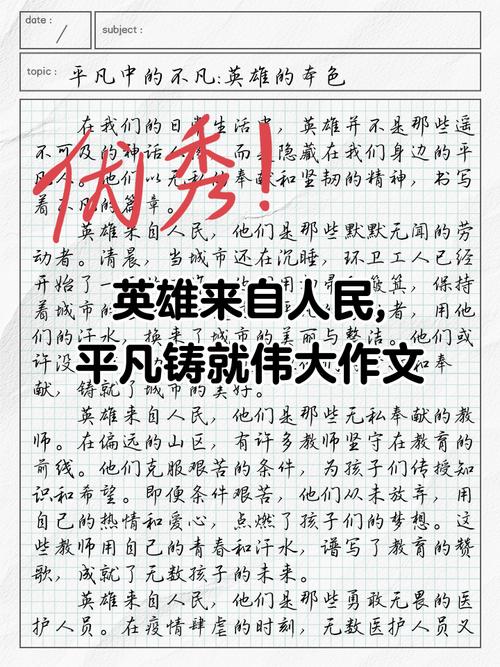 date :
subject :
topic : 平凡中的不凡:英雄的本色
在我们的日常生活当，英雄并不是那些遥
不可及的神话人，而是隐藏在我们身边的平
凡人。他们以无私的奉献和坚韧的精神，书写
着不凡的篇章。
优秀!
英雄来自人民，他们是那些默默无闻的劳
动者。清晨，当城市还在沉睡，环卫工人已经
开始了一 保持
着城市的 者，用他
们的汗水，换来了城市的美丽与整洁。他们或
许没 和奉
献，铸就了城市的美好。
英雄来自人民,
平凡铸就伟大作文
英雄来自人民，他们是那些无私奉献的教
师。在偏远的山区，有许多教师坚守在教育的
前线。他们克服艰苦的条件，为孩子们传授知
识和希望。即便条件艰苦，他们从未放弃，用
自己的热情和爱心，点燃了孩子们的梦想。这
些教师用自己的青春和汗水，谱写了教育的赞
歌，成就了无数孩子的未来。
英雄来自人民，他们是那些勇敢无畏的医
护人员。在疫情肆虐的时刻，无数医护人员义